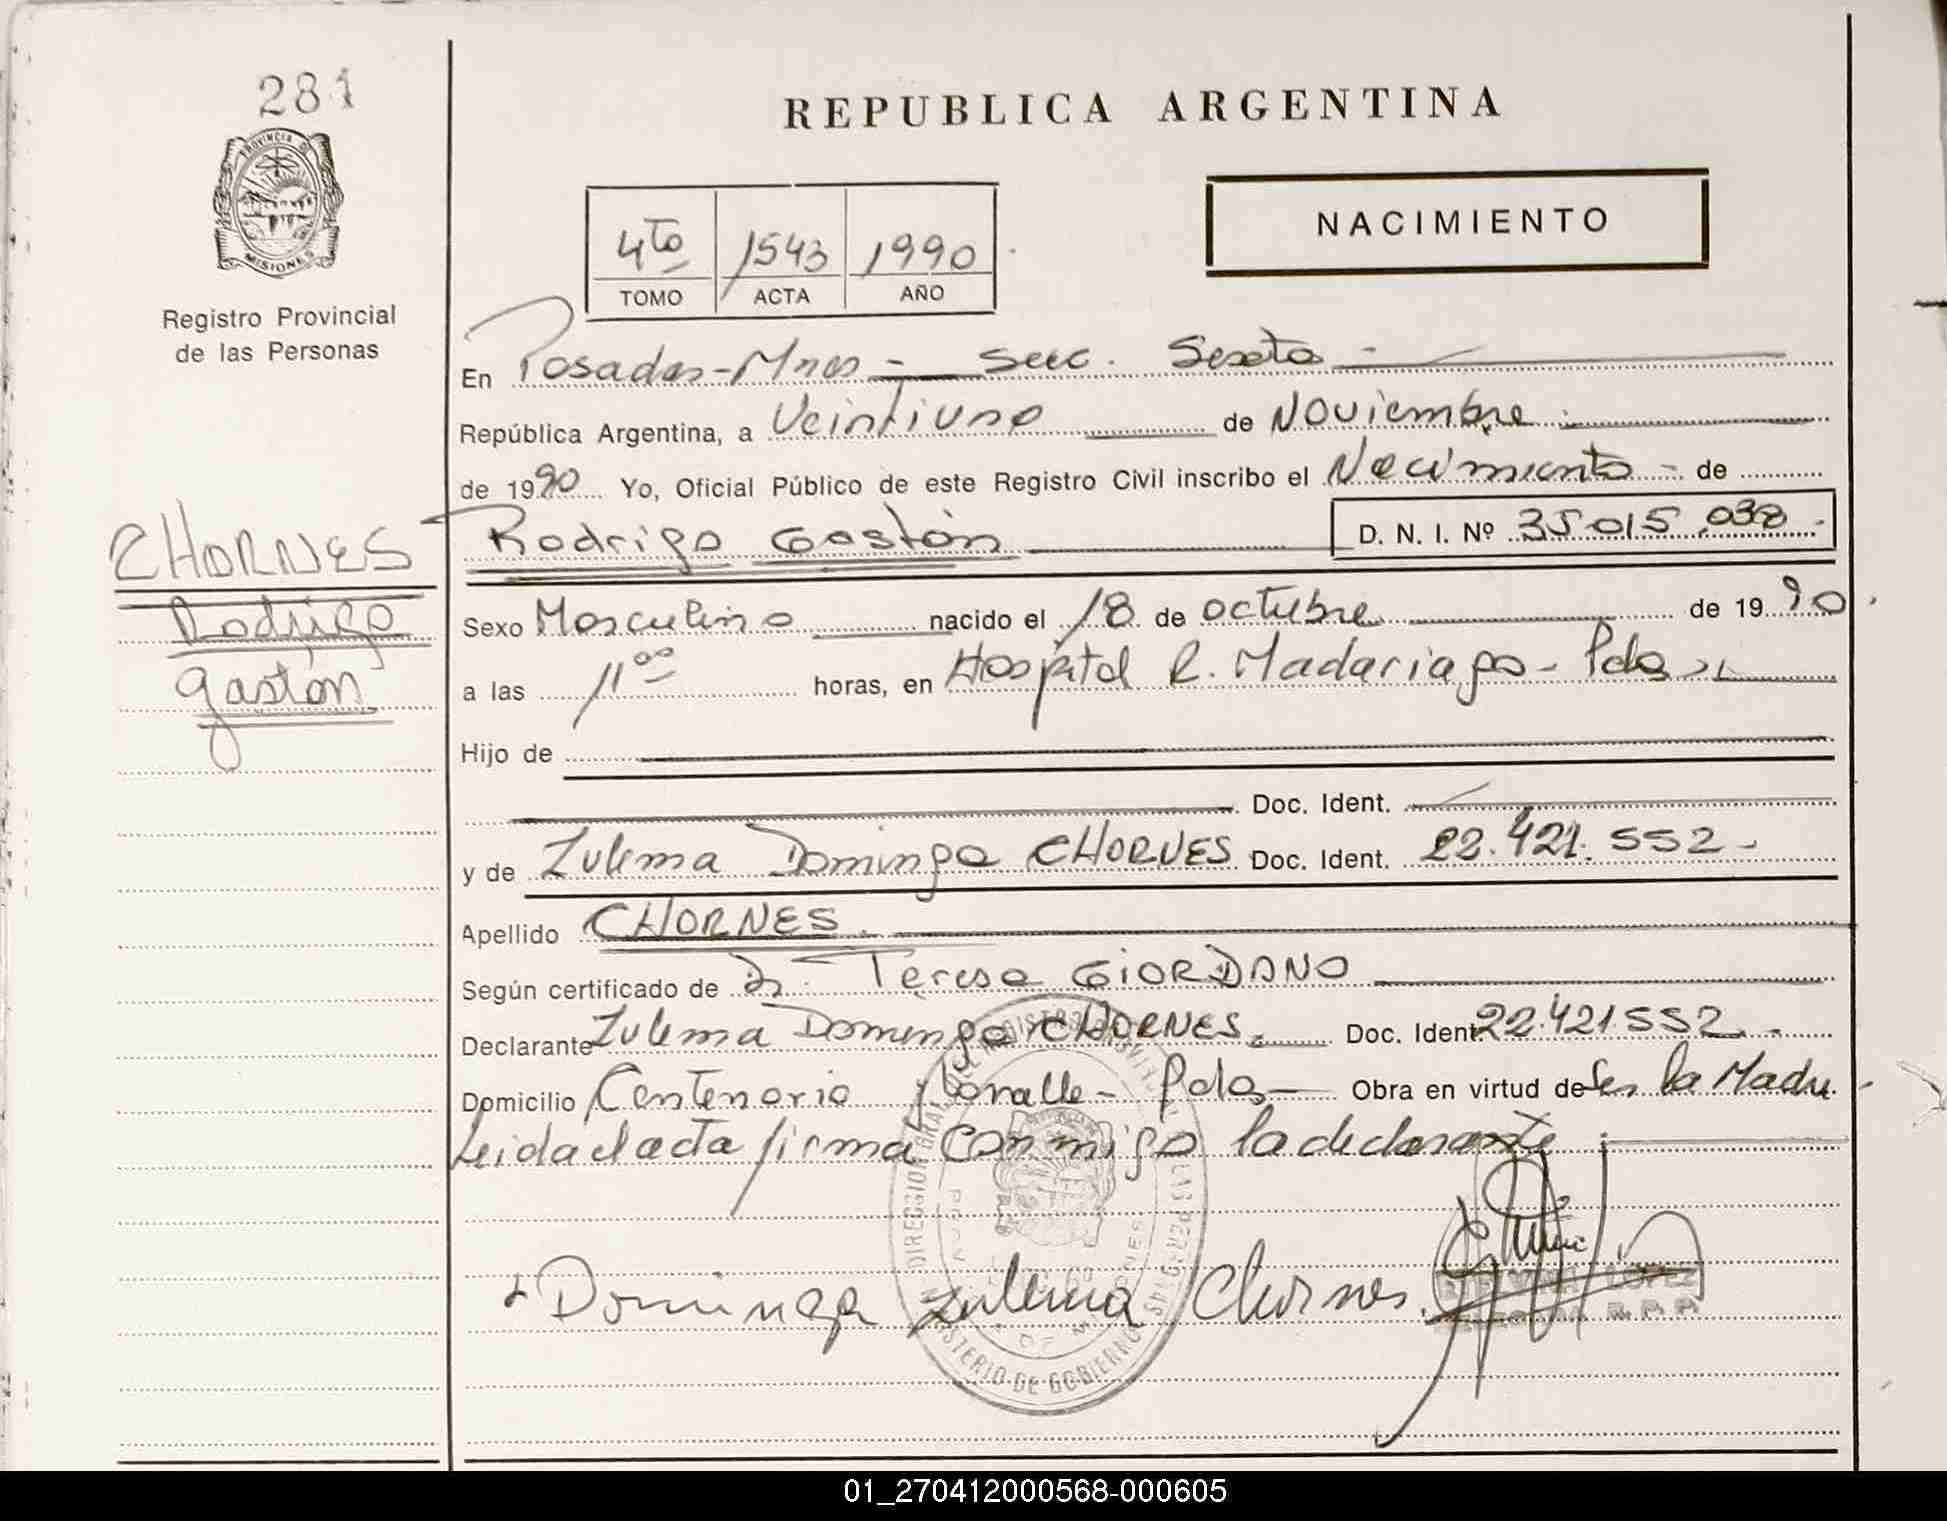 281
PROVINCIA DE
MISIONES
Registro Provincial
de las Personas
CHORNES
Rodrigo
gastón
REPUBLICA ARGENTINA
NACIMIENTO
4to 1543 1990
TOMO ACTA AÑO
En Posadas-Mnes - Secc. Sexta -
República Argentina, a Veintiuno de Noviembre
de 1990 Yo, Oficial Público de este Registro Civil inscribo el Nacimiento - de
Rodrigo Gastón D. N. I. Nº 35.015.038 -
Sexo Masculino nacido el 18 de octubre de 1990.
a las 11 00 horas, en Hospital R. Madariaga - Pdas
Hijo de
Doc. Ident.
y de Zulema Dominga CHORNES Doc. Ident. 22.421.552 -
Apellido CHORNES.
Según certificado de Dr. Teresa GIORDANO
Declarante Zulema Dominga CHORNES. Doc. Ident. 22.421.552. -
Domicilio Centenario y Lavalle - Pdas Obra en virtud de Ser la Madre.
Leida el acta firma conmigo la declarante
Dominga Zulema Chornes.
MINISTERIO DE GOBIERNO
01_270412000568-000605